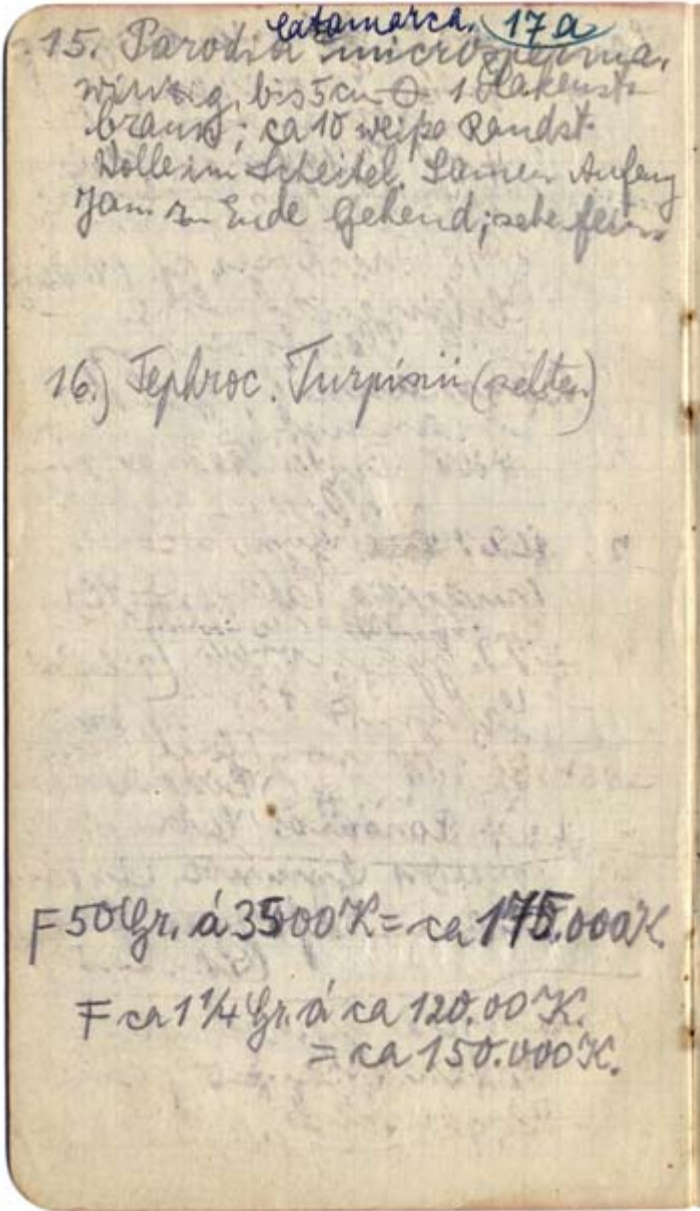 Catamarca. 17a
15. Parodia microsperma.
winzig, bis 5cm ⌀ 1 Hakenst.
braun; ca 10 weiße Randst.
Wolle im Scheitel. Samen Anfang
Jan. zu Ende gehend; sehr fein
16.) Tephroc. Turpinii (selten)
F 50 Gr. á 3500 K = ca 175.000 K.
F ca 1 1/4 Gr. á ca 120.00 K.
= ca 150.000 K.